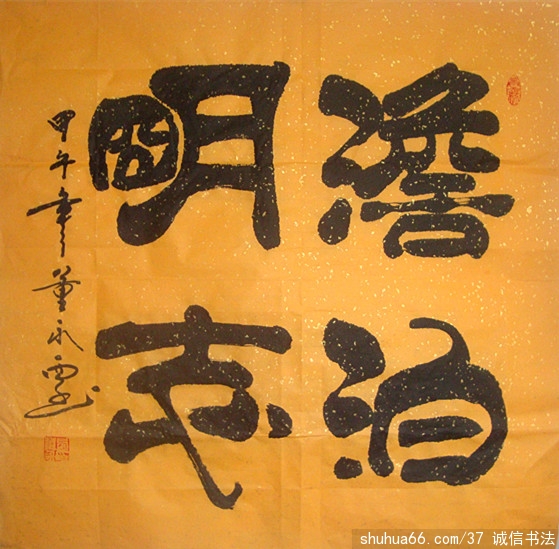 澹泊
明志
甲午年董永西
shuhua66.com/37 诚信书法